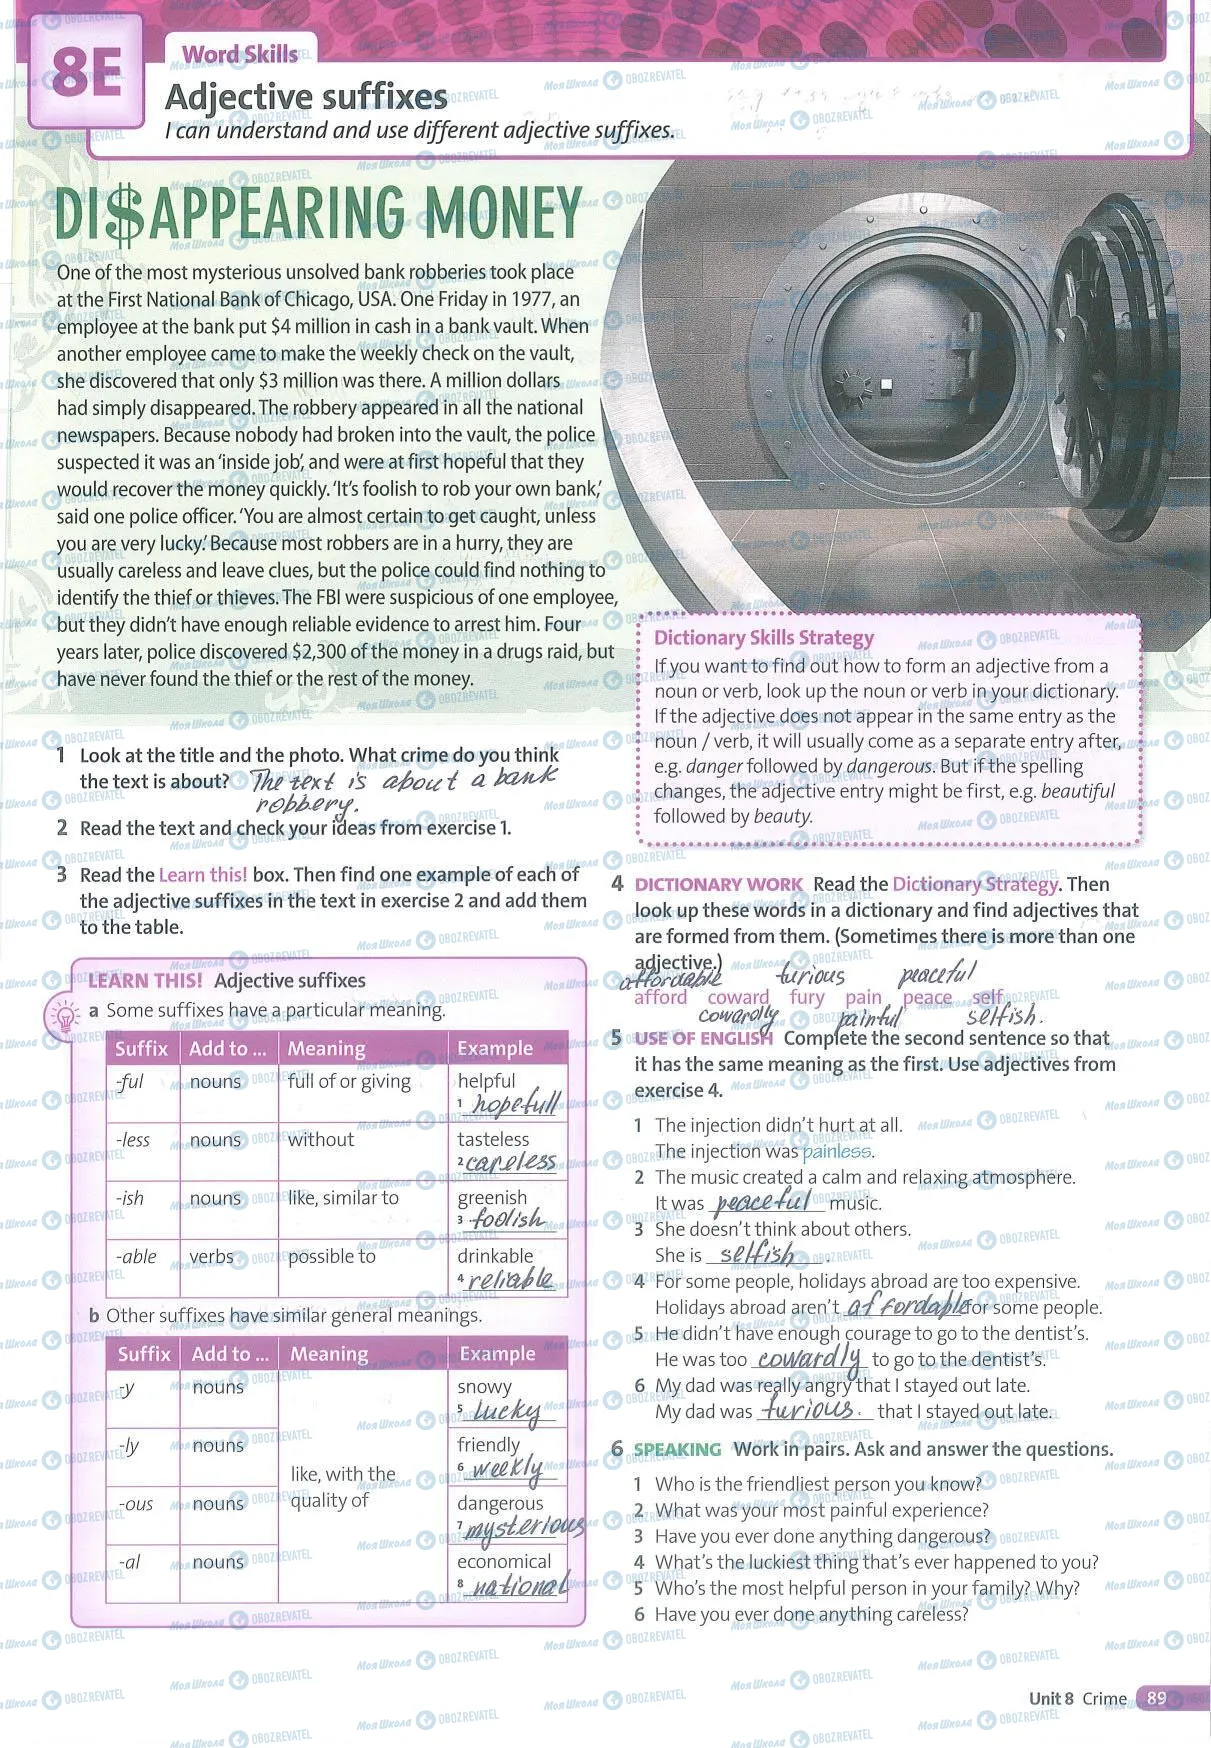 8E
Word Skills
Adjective suffixes
I can understand and use different adjective suffixes.
DI$APPEARING MONEY
One of the most mysterious unsolved bank robberies took place
at the First National Bank of Chicago, USA. One Friday in 1977, an
employee at the bank put $4 million in cash in a bank vault. When
another employee came to make the weekly check on the vault,
she discovered that only $3 million was there. A million dollars
had simply disappeared. The robbery appeared in all the national
newspapers. Because nobody had broken into the vault, the police
suspected it was an 'inside job', and were at first hopeful that they
would recover the money quickly. 'It's foolish to rob your own bank,'
said one police officer. 'You are almost certain to get caught, unless
you are very lucky.' Because most robbers are in a hurry, they are
usually careless and leave clues, but the police could find nothing to
identify the thief or thieves. The FBI were suspicious of one employee,
but they didn't have enough reliable evidence to arrest him. Four
years later, police discovered $2,300 of the money in a drugs raid, but
have never found the thief or the rest of the money.
1 Look at the title and the photo. What crime do you think
the text is about? The text is about a bank
robbery.
2 Read the text and check your ideas from exercise 1.
3 Read the Learn this! box. Then find one example of each of
the adjective suffixes in the text in exercise 2 and add them
to the table.
LEARN THIS! Adjective suffixes
a Some suffixes have a particular meaning.
Suffix Add to ... Meaning Example
-ful nouns full of or giving helpful
1 hopefull
-less nouns without tasteless
2 careless
-ish nouns like, similar to greenish
3 foolish
-able verbs possible to drinkable
4 reliable
b Other suffixes have similar general meanings.
Suffix Add to ... Meaning Example
-y nouns snowy
5 lucky
-ly nouns friendly
6 weekly
like, with the
quality of
-ous nouns dangerous
7 mysterious
-al nouns economical
8 national
Dictionary Skills Strategy
If you want to find out how to form an adjective from a
noun or verb, look up the noun or verb in your dictionary.
If the adjective does not appear in the same entry as the
noun / verb, it will usually come as a separate entry after,
e.g. danger followed by dangerous. But if the spelling
changes, the adjective entry might be first, e.g. beautiful
followed by beauty.
4 DICTIONARY WORK Read the Dictionary Strategy. Then
look up these words in a dictionary and find adjectives that
are formed from them. (Sometimes there is more than one
adjective.)
affordable furious peaceful
afford coward fury pain peace self
cowardly painful selfish.
5 USE OF ENGLISH Complete the second sentence so that
it has the same meaning as the first. Use adjectives from
exercise 4.
1 The injection didn't hurt at all.
The injection was painless.
2 The music created a calm and relaxing atmosphere.
It was peaceful music.
3 She doesn't think about others.
She is selfish.
4 For some people, holidays abroad are too expensive.
Holidays abroad aren't affordable for some people.
5 He didn't have enough courage to go to the dentist's.
He was too cowardly to go to the dentist's.
6 My dad was really angry that I stayed out late.
My dad was furious. that I stayed out late.
6 SPEAKING Work in pairs. Ask and answer the questions.
1 Who is the friendliest person you know?
2 What was your most painful experience?
3 Have you ever done anything dangerous?
4 What's the luckiest thing that's ever happened to you?
5 Who's the most helpful person in your family? Why?
6 Have you ever done anything careless?
Unit 8 Crime 89
МояШкола OBOZREVATEL